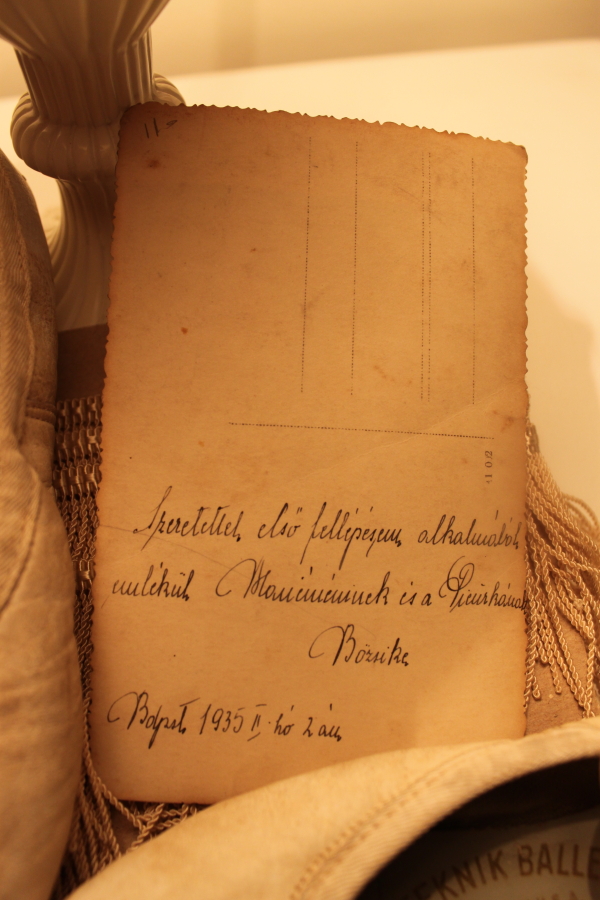 11
Szeretettel első fellépésem alkalmából
emlékül Mancinéninek és a Picurkának
Bözsike
Bdpest 1935 II. hó 2 án
EKNIK BALLE